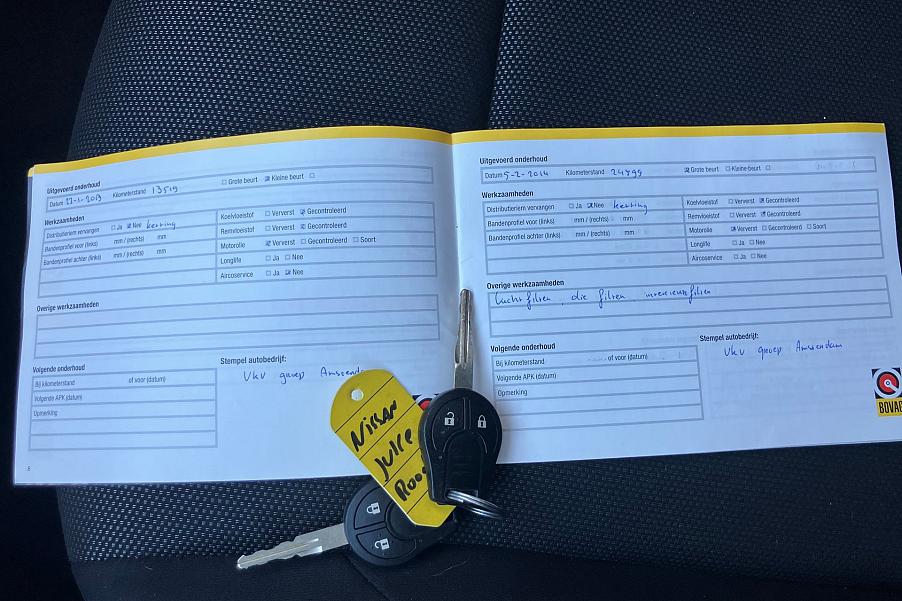 Uitgevoerd onderhoud
Datum 22-1-2013 Kilometerstand 13519 Grote beurt Kleine beurt
Werkzaamheden
Distributieriem vervangen Ja Nee ketting
Bandenprofiel voor (links) mm / (rechts) mm
Bandenprofiel achter (links) mm / (rechts) mm
Koelvloeistof Ververst Gecontroleerd
Remvloeistof Ververst Gecontroleerd
Motorolie Ververst Gecontroleerd Soort
Longlife Ja Nee
Aircoservice Ja Nee
Overige werkzaamheden
Volgende onderhoud
Bij kilometerstand of voor (datum)
Volgende APK (datum)
Opmerking
Stempel autobedrijf:
VKV groep
8
Uitgevoerd onderhoud
Datum 5-2-2014 Kilometerstand 24799 Grote beurt Kleine beurt
Werkzaamheden
Distributieriem vervangen Ja Nee ketting
Bandenprofiel voor (links) mm / (rechts) mm
Bandenprofiel achter (links) mm / (rechts) mm
Koelvloeistof Ververst Gecontroleerd
Remvloeistof Ververst Gecontroleerd
Motorolie Ververst Gecontroleerd Soort
Longlife Ja Nee
Aircoservice Ja Nee
Overige werkzaamheden
Luchtfilter, olie filter, interieurfilter
Volgende onderhoud
Bij kilometerstand of voor (datum)
Volgende APK (datum)
Opmerking
Stempel autobedrijf:
VKV groep Amsterdam
BOVAG
Nissan
Juke